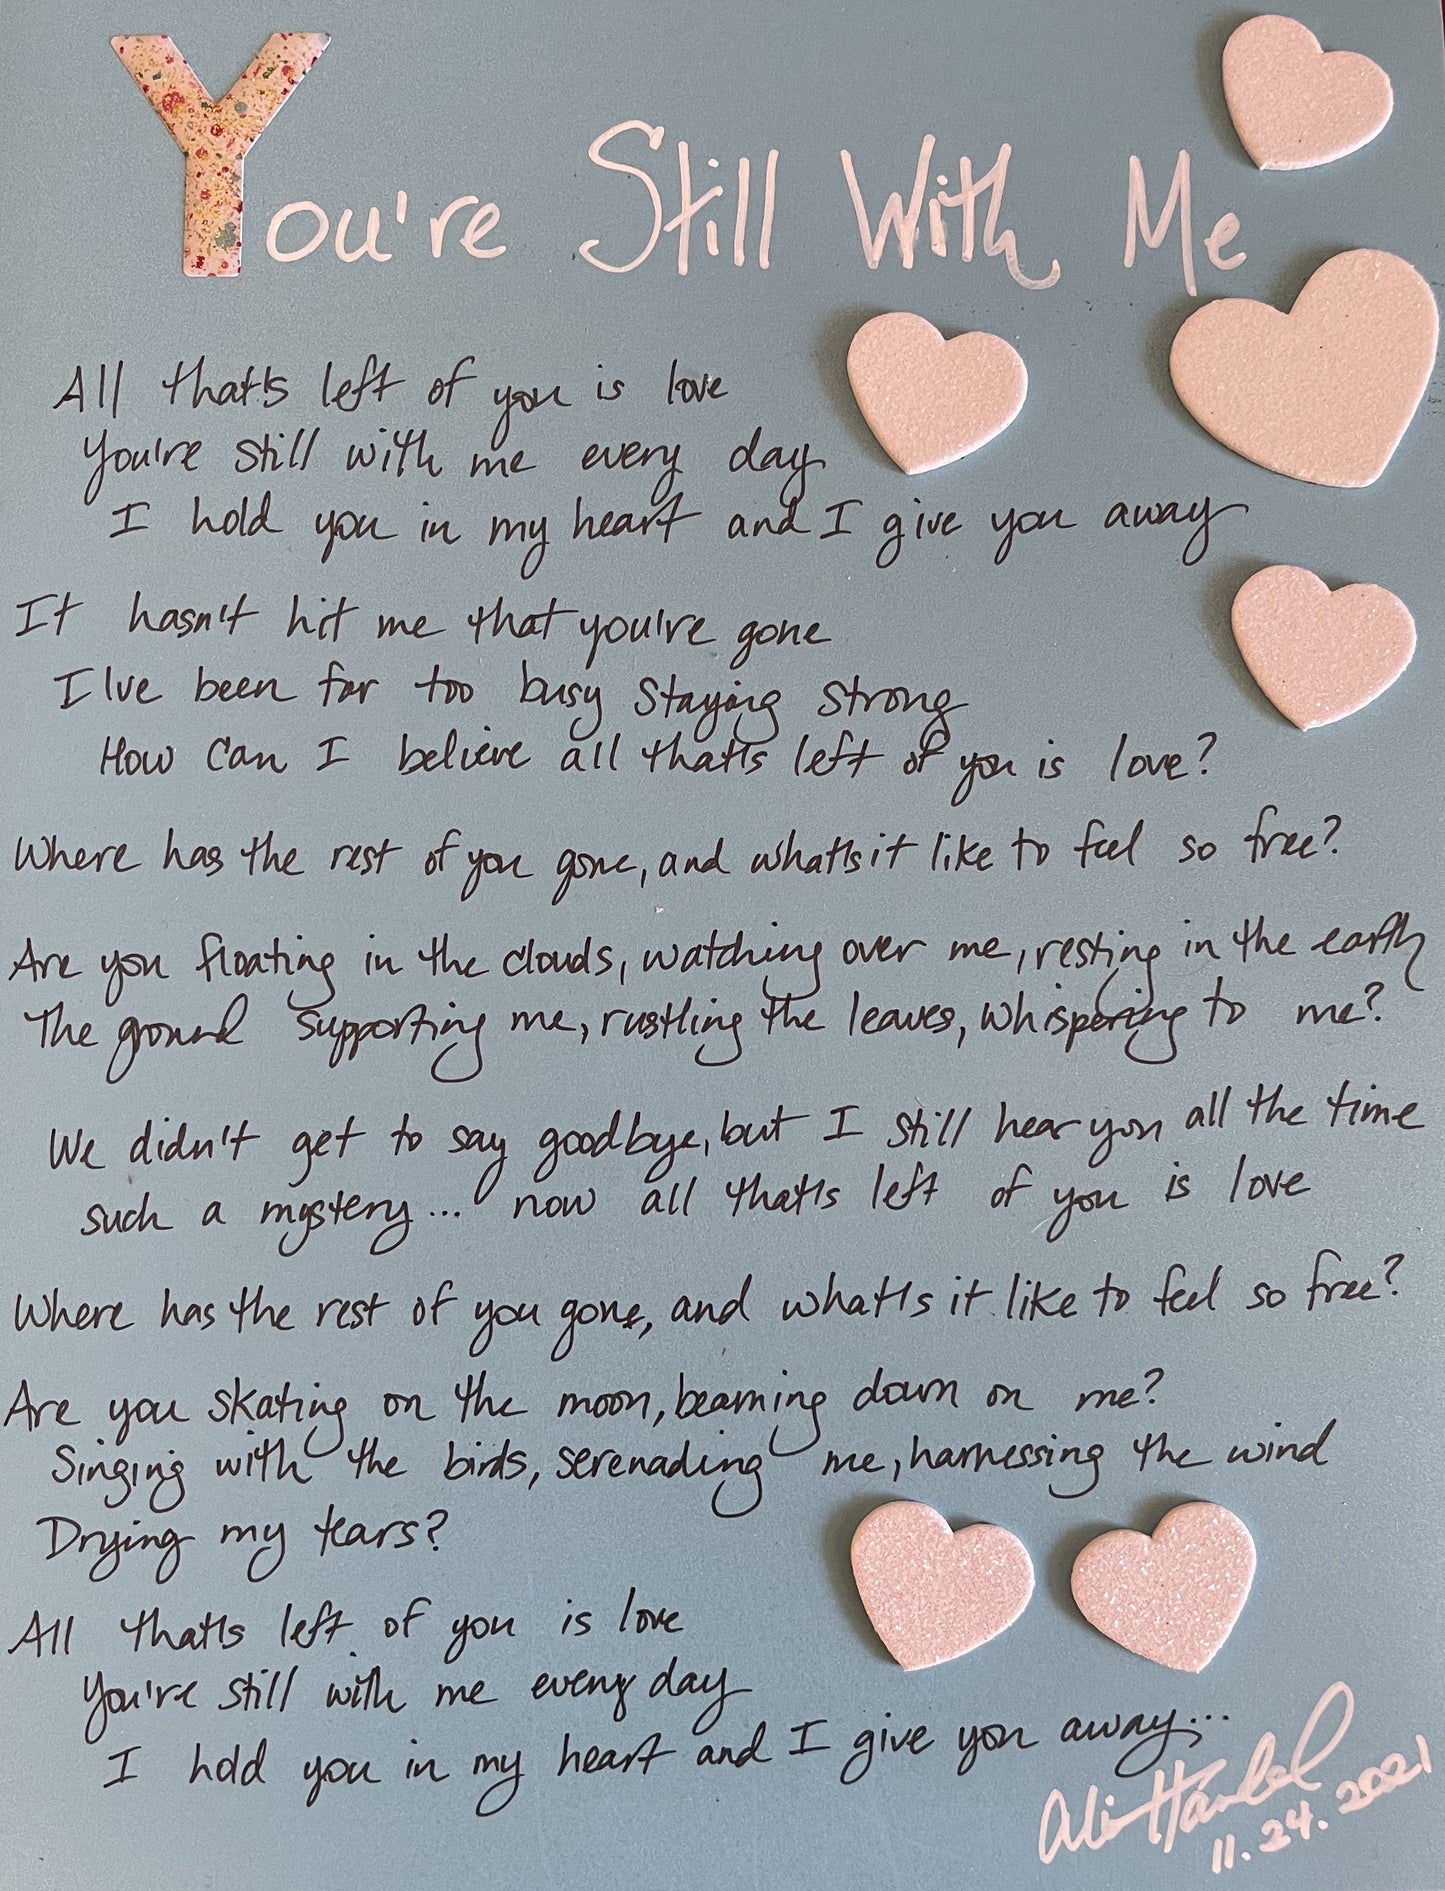 You're Still With Me
All that's left of you is love
You're still with me every day
I hold you in my heart and I give you away
It hasn't hit me that you're gone
I've been far too busy staying strong
How can I believe all that's left of you is love?
Where has the rest of you gone, and what's it like to feel so free?
Are you floating in the clouds, watching over me, resting in the earth
The ground supporting me, rustling the leaves, whispering to me?
We didn't get to say goodbye, but I still hear you all the time
such a mystery... now all that's left of you is love
Where has the rest of you gone, and what's it like to feel so free?
Are you skating on the moon, beaming down on me?
Singing with the birds, serenading me, harnessing the wind
Drying my tears?
All that's left of you is love
You're still with me every day
I hold you in my heart and I give you away...
Ali Handal
11.24.2021